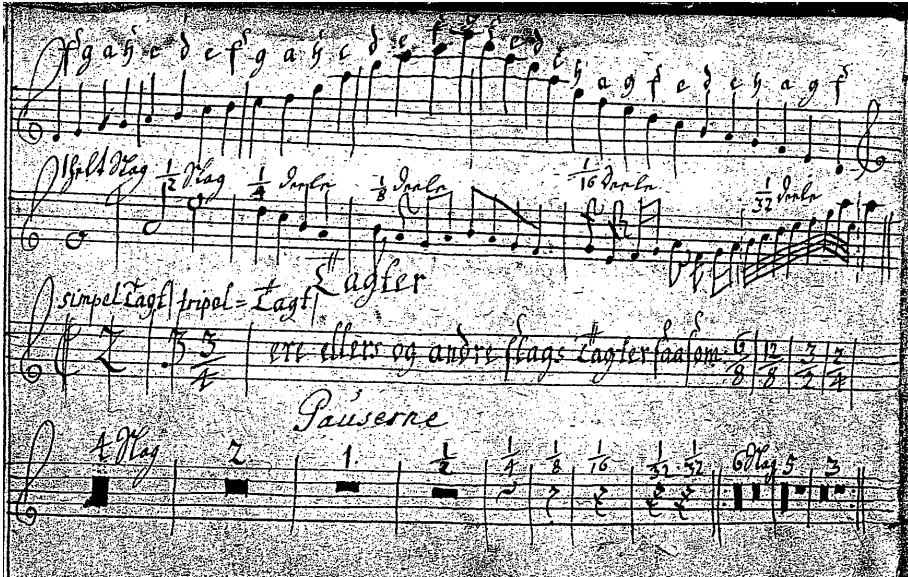 f g a h c d e f g a h c d e f g f e d c h a g f e d c h a g f
1 helt Slag 1/2 Slag 1/4 deele 1/8 deele 1/16 deele 1/32 deele
Tagter
simpel Tagt tripel = Tagt
2 3 3/4 ere ellers og andre slags Tagter saasom: 6/8 12/8 3/2 2/4
Pauserne
4 Slag 2 1 1/2 1/4 1/8 1/16 1/32 1/32 6 Slag 5 3